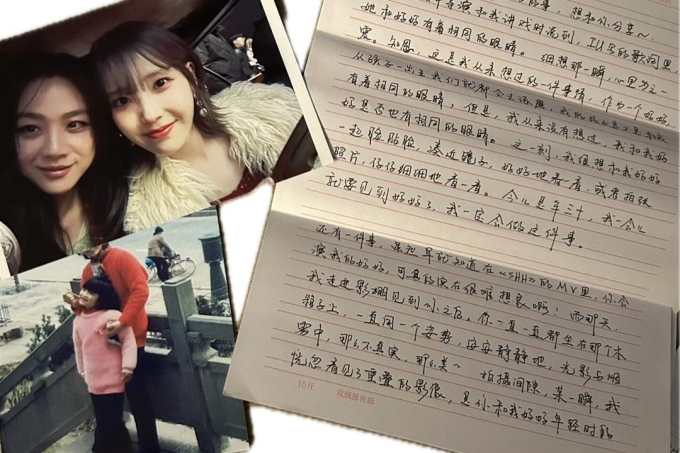 想和你分享~
和我讲戏时说到，IU写的歌词里，
她和好好有着相同的眼睛。细想那一瞬，心里为之一
震。知恩，这是我从来想过的一件事情，作为一个妈妈，
从孩子一出生我们就都会去
有着相同的眼睛。但是，我从来没有想过，我和我好
好是否也有相同的眼睛。这一刻，我很想和我好好
一起脸贴脸，凑近镜子，好好地看一看，或者拍张
照片，仔仔细细地看一看。今儿是年三十，我一会儿
就要见到好好了，我一定会做这件事。
还有一件事，虽然早就知道在《SHH》的MV里，你会
演我的好好，可真的实在很难想象啊！而那天，
我走进影棚见到你之后，你一直一直都坐在那个木
椅子上，一直同一个姿势，安安静静地，光影与烟
雾中，那么不真实，那么美~ 拍摄间隙，某一瞬，我
恍忽看见了重叠的影像，是你和我好好年轻时
16开 双线报告纸